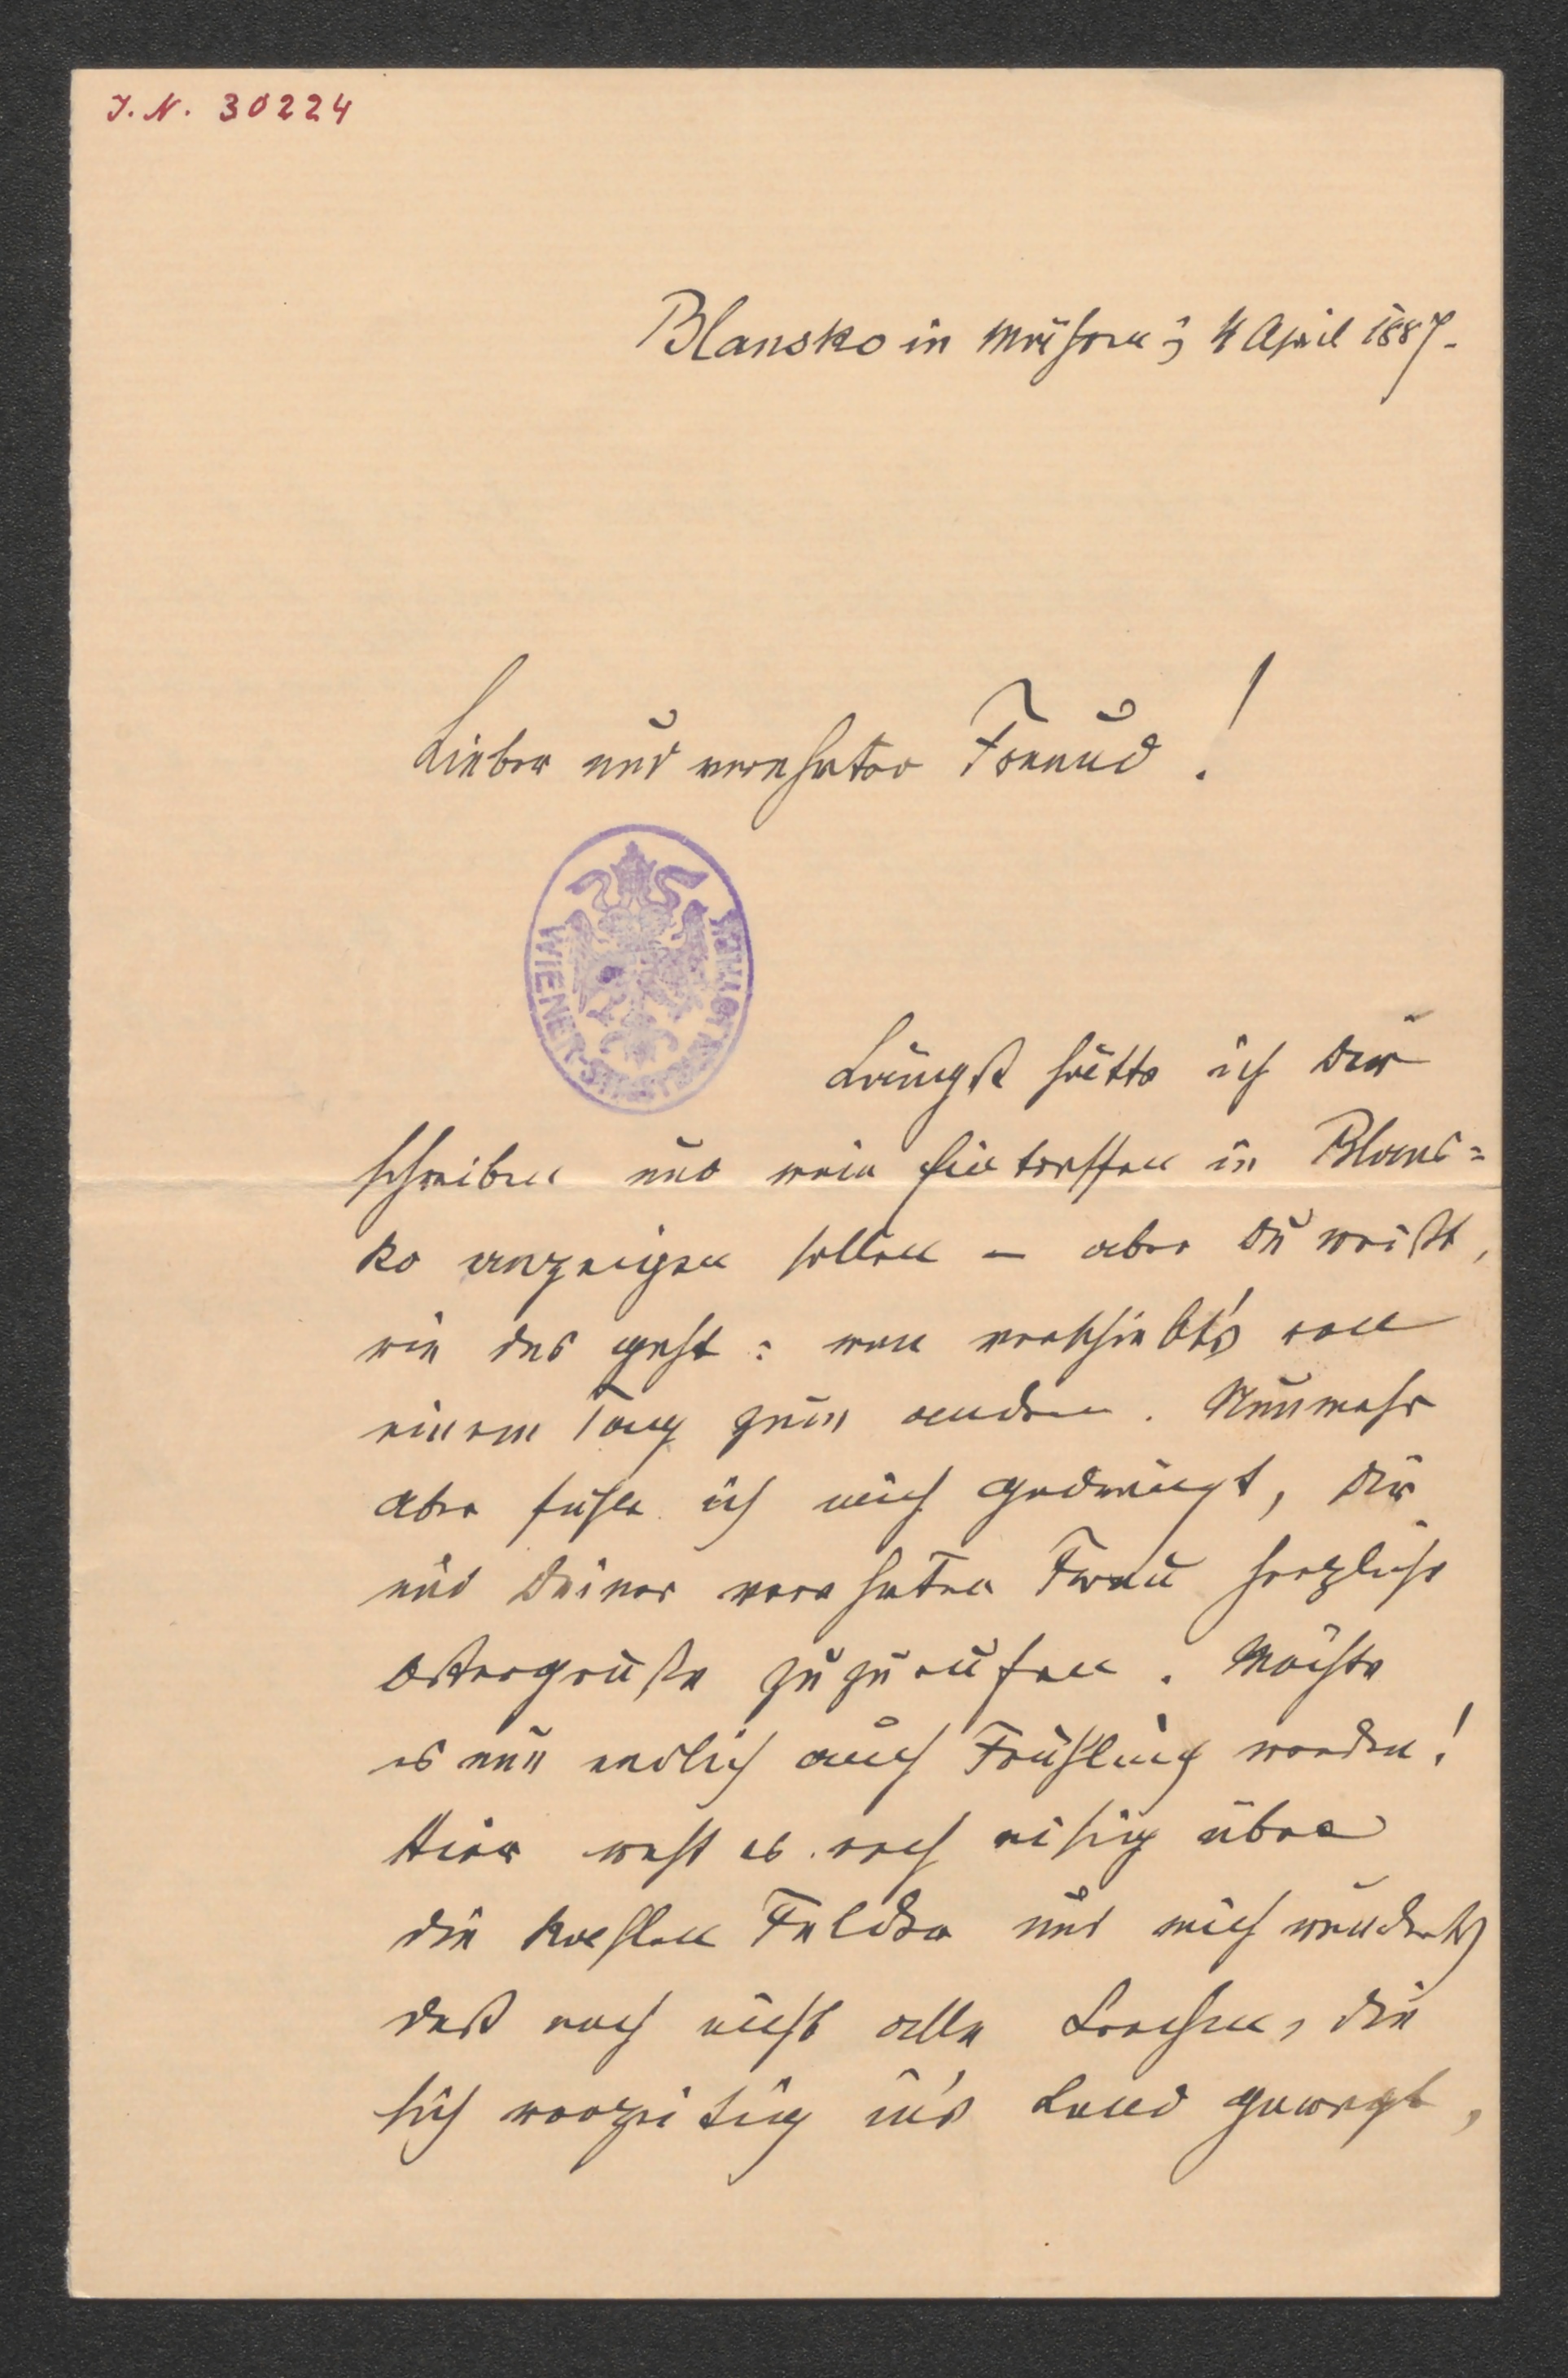 J. N. 30224
Blansko in Mähren, 4 April 1887.
Lieber und verehrter Freund!
WIENER STADTBIBLIOTHEK
Längst hätte ich Dir
schreiben und mein Eintreffen in Blans=
ko anzeigen sollen – aber Du weißt,
wie das geht: man verschiebt's von
einem Tag zum andern. Nunmehr
aber fühle ich mich gedrängt, Dir
und Deiner verehrten Frau herzliche
Ostergrüße zuzurufen. Möchte
es nun endlich auch Frühling werden!
Hier weht es noch eisig über
die kahlen Felder und mich wundert's
daß noch nicht alle Lerchen, die
sich vorzeitig in's Land gewagt,